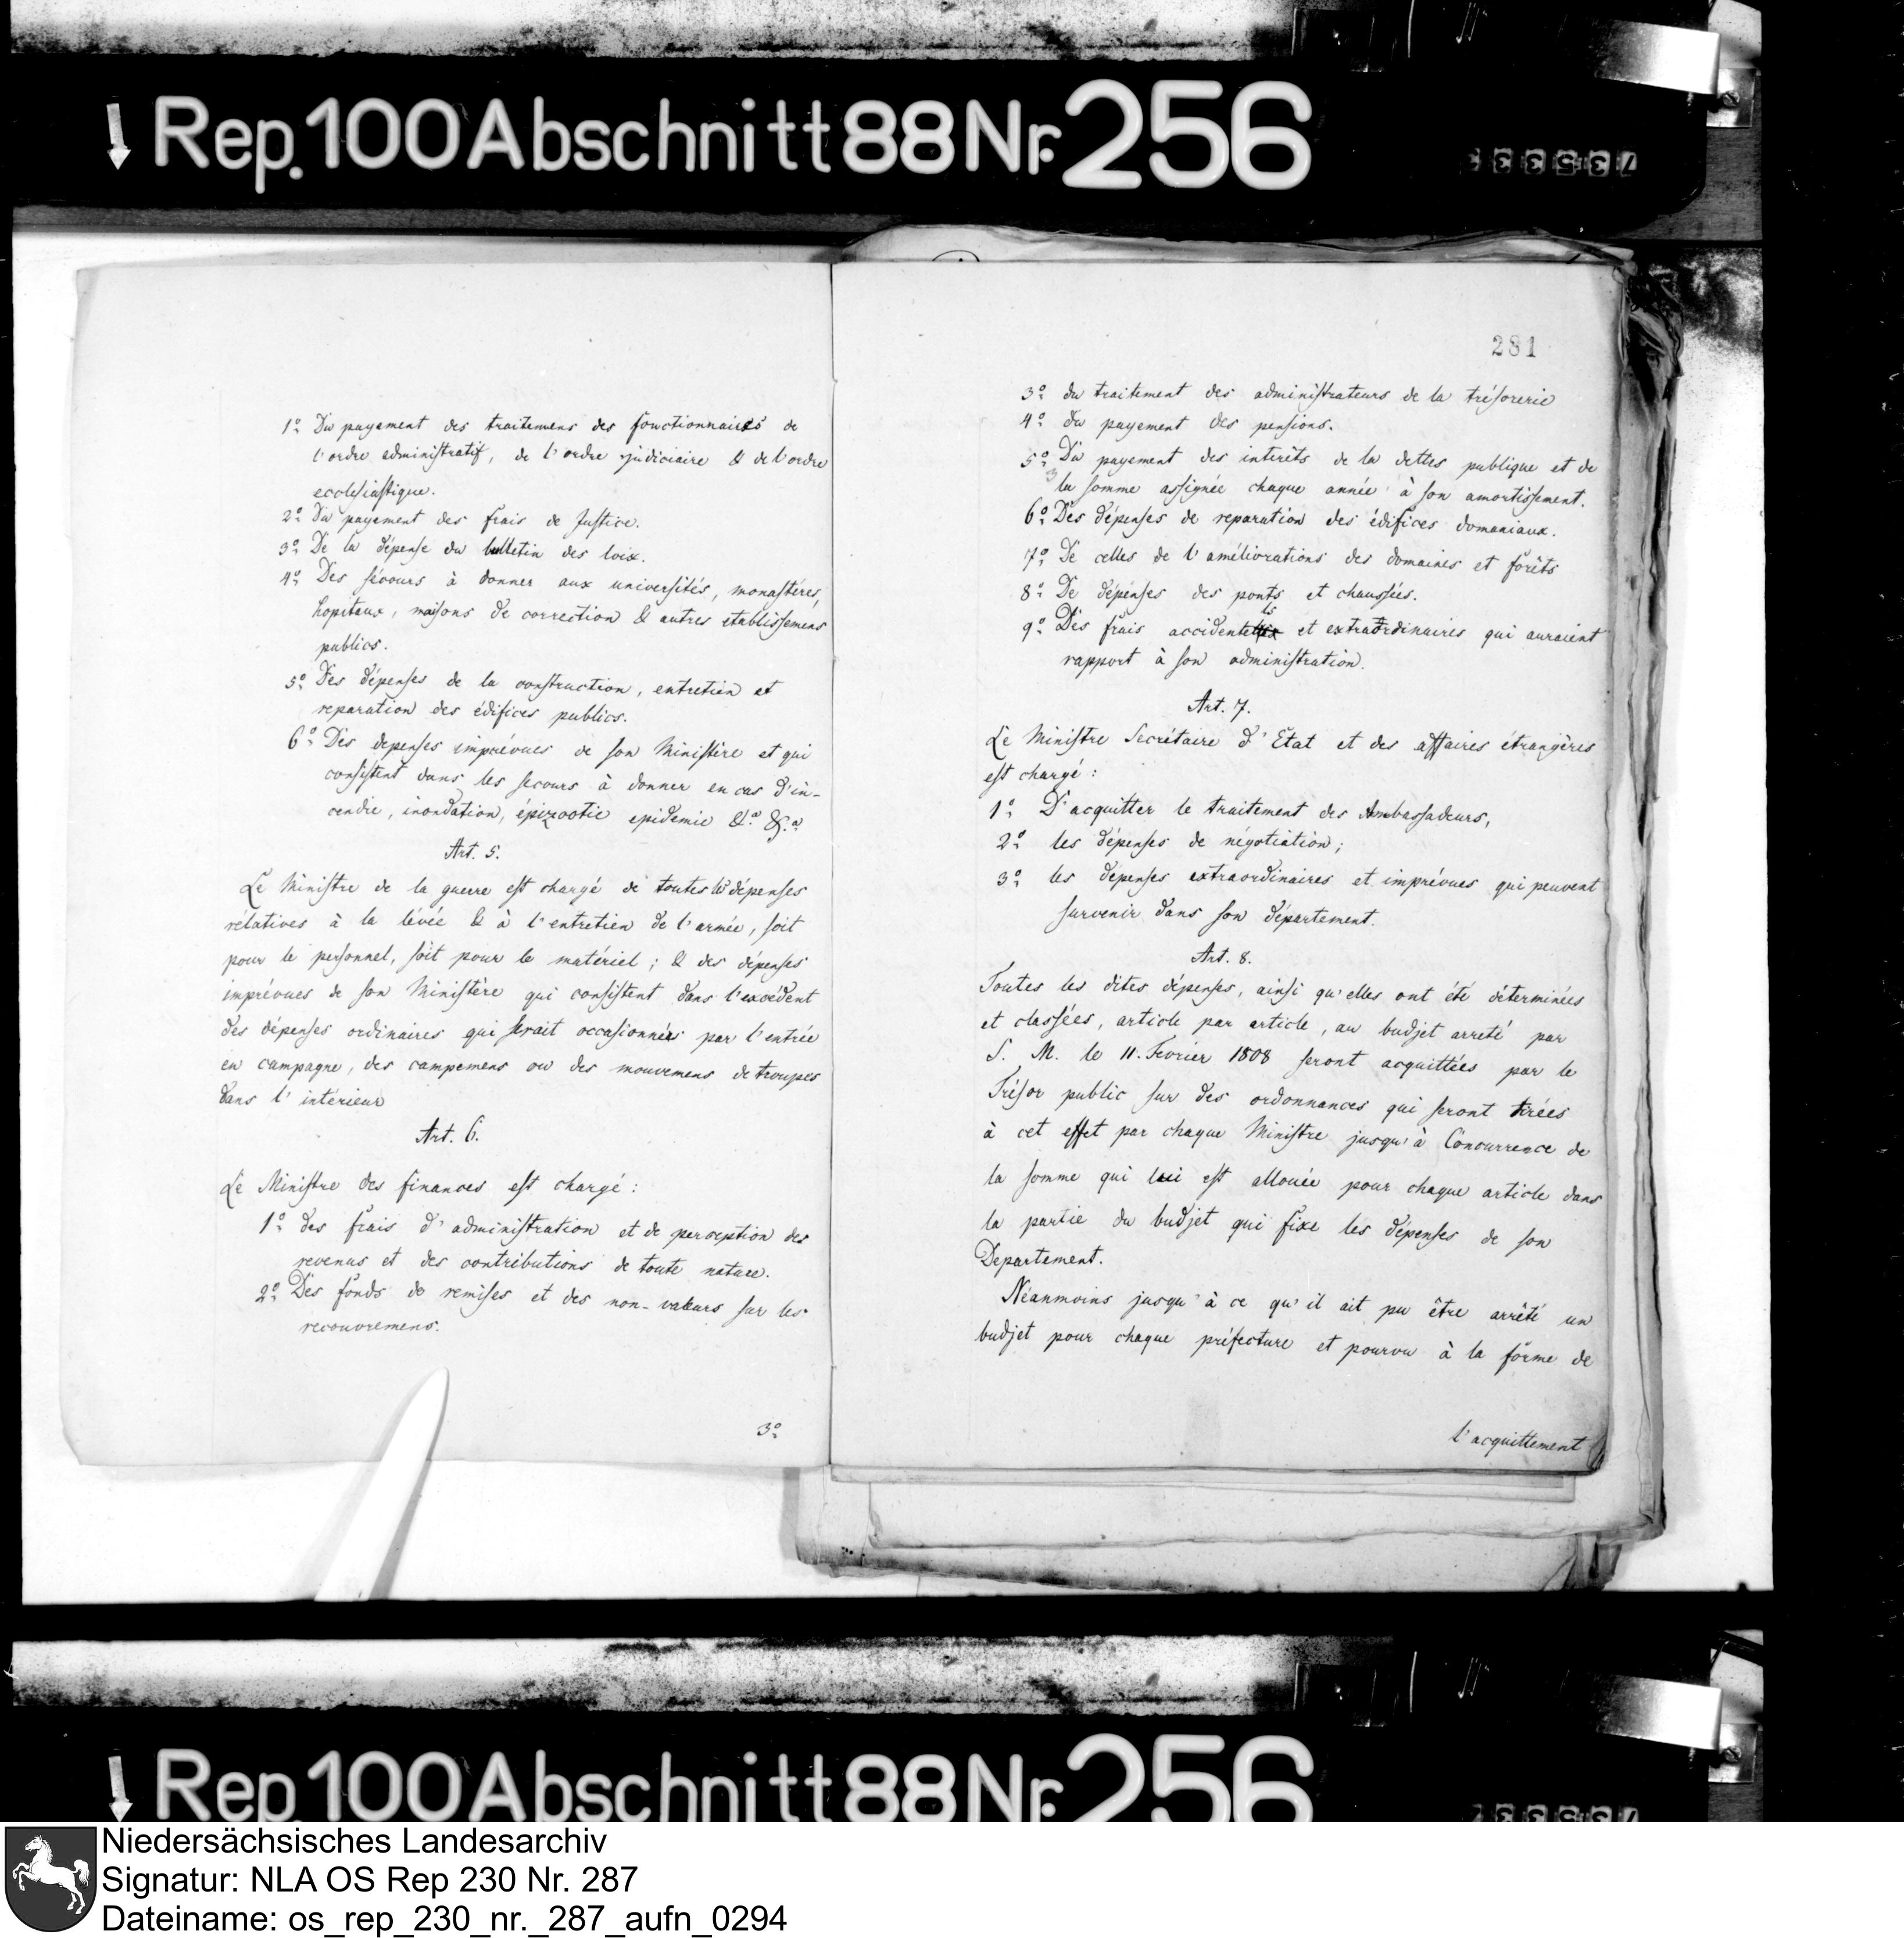 Rep. 100 Abschnitt 88 Nr. 256
1.º Du payement des traitemens des fonctionnaires de
l'ordre administratif, de l'ordre judiciaire & de l'ordre
ecclesiastique.
2.º Du payement des frais de Justice.
3.º De la dépense du bulletin des loix.
4.º Des sécours à donner aux universités, monastéres,
hopitaux, maisons de correction & autres etablissemens
publics.
5.º Des dépenses de la construction, entretien et
reparation des édifices publics.
6.º Des depenses imprévues de son Ministère et qui
consistent dans les secours à donner en cas d'in-
cendie, inondation, épizootie epidemie &.ª &.ª
Art. 5.
Le Ministre de la guerre est chargé de toutes les dépenses
rélatives à la lévée & à l'entretien de l'armée, soit
pour le personnel, soit pour le matériel; & des dépenses
imprévues de son Ministère qui consistent dans l'excédent
des dépenses ordinaires qui serait occasionnées par l'entrée
en campagne, des campemens ou des mouvemens de troupes
dans l'intérieur
Art. 6.
Le Ministre des finances est chargé:
1.º des frais d'administration et de perception des
revenus et des contributions de toute nature.
2.º Des fonds de remises et des non-valeurs sur les
recouvremens.
3.º
281
3.º du traitement des administrateurs de la trésorerie
4.º du payement des pensions.
5.º Du payement des interêts de la dettes publique et de
la somme assignée chaque année à son amortissement.
6.º Des dépenses de reparation des édifices domaniaux.
7.º De celles de l'améliorations des domaines et forêts
8.º De dépenses des ponts et chaussées.
9.º Des frais accidentels et extraordinaires qui auraient
rapport à son administration.
Art. 7.
Le Ministre Secrétaire d'Etat et des affaires étrangères
est chargé:
1.º D'acquitter le traitement des Ambassadeurs,
2.º les dépenses de négotiation;
3.º les dépenses extraordinaires et imprévues qui peuvent
survenir dans son département.
Art. 8.
Toutes les dites dépenses, ainsi qu'elles ont été déterminées
et classées, article par article, au budjet arreté par
S. M. le 11. Fevrier 1808 seront acquittées par le
Trésor public sur des ordonnances qui seront tirées
à cet effet par chaque Ministre jusqu'à Concurrence de
la somme qui lui est allouée pour chaque article dans
la partie du budjet qui fixe les dépenses de son
Departement.
Néanmoins jusqu'à ce qu'il ait pu être arrêté un
budjet pour chaque préfecture et pourvu à la forme de
l'acquittement
Rep. 100 Abschnitt 88 Nr. 256
Niedersächsisches Landesarchiv
Signatur: NLA OS Rep 230 Nr. 287
Dateiname: os_rep_230_nr._287_aufn_0294